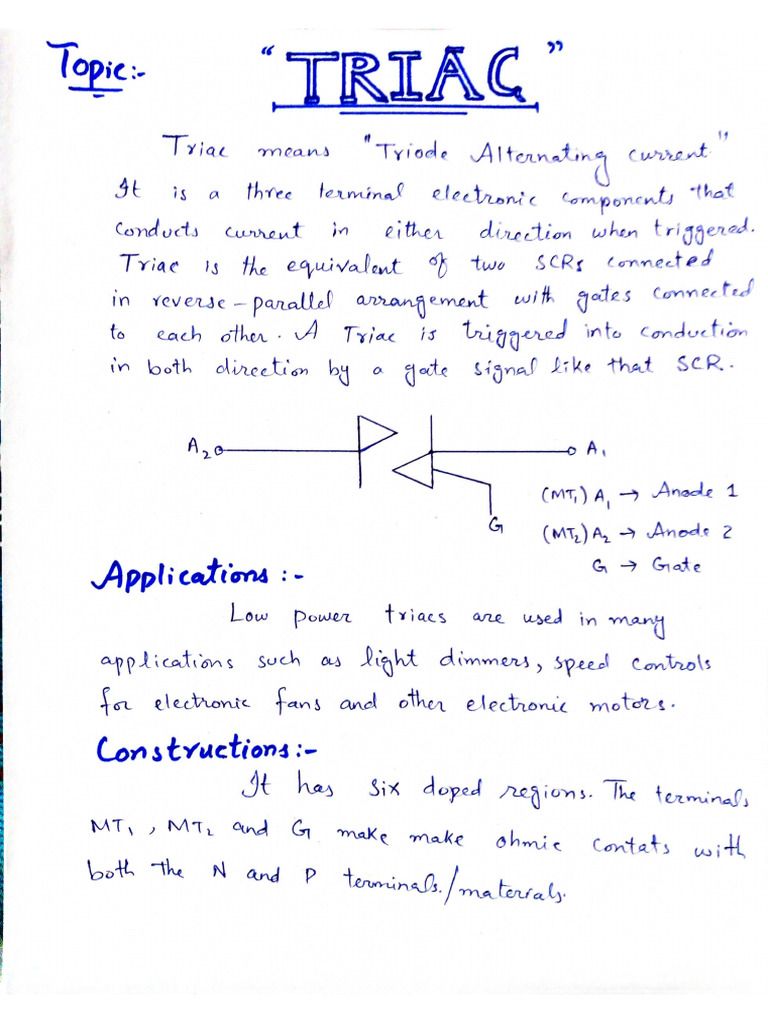 Topic:-
"TRIAC"
Triac means "Triode Alternating current"
It is a three terminal electronic components that
conducts current in either direction when triggered.
Triac is the equivalent of two SCRs connected
in reverse-parallel arrangement with gates connected
to each other. A Triac is triggered into conduction
in both direction by a gate signal like that SCR.
A2
A1
G
(MT1) A1 → Anode 1
(MT2) A2 → Anode 2
G → Gate
Applications:-
Low power triacs are used in many
applications such as light dimmers, speed controls
for electronic fans and other electronic motors.
Constructions:-
It has six doped regions. The terminals
MT1, MT2 and G make make ohmic contats with
both the N and P terminals./materials.